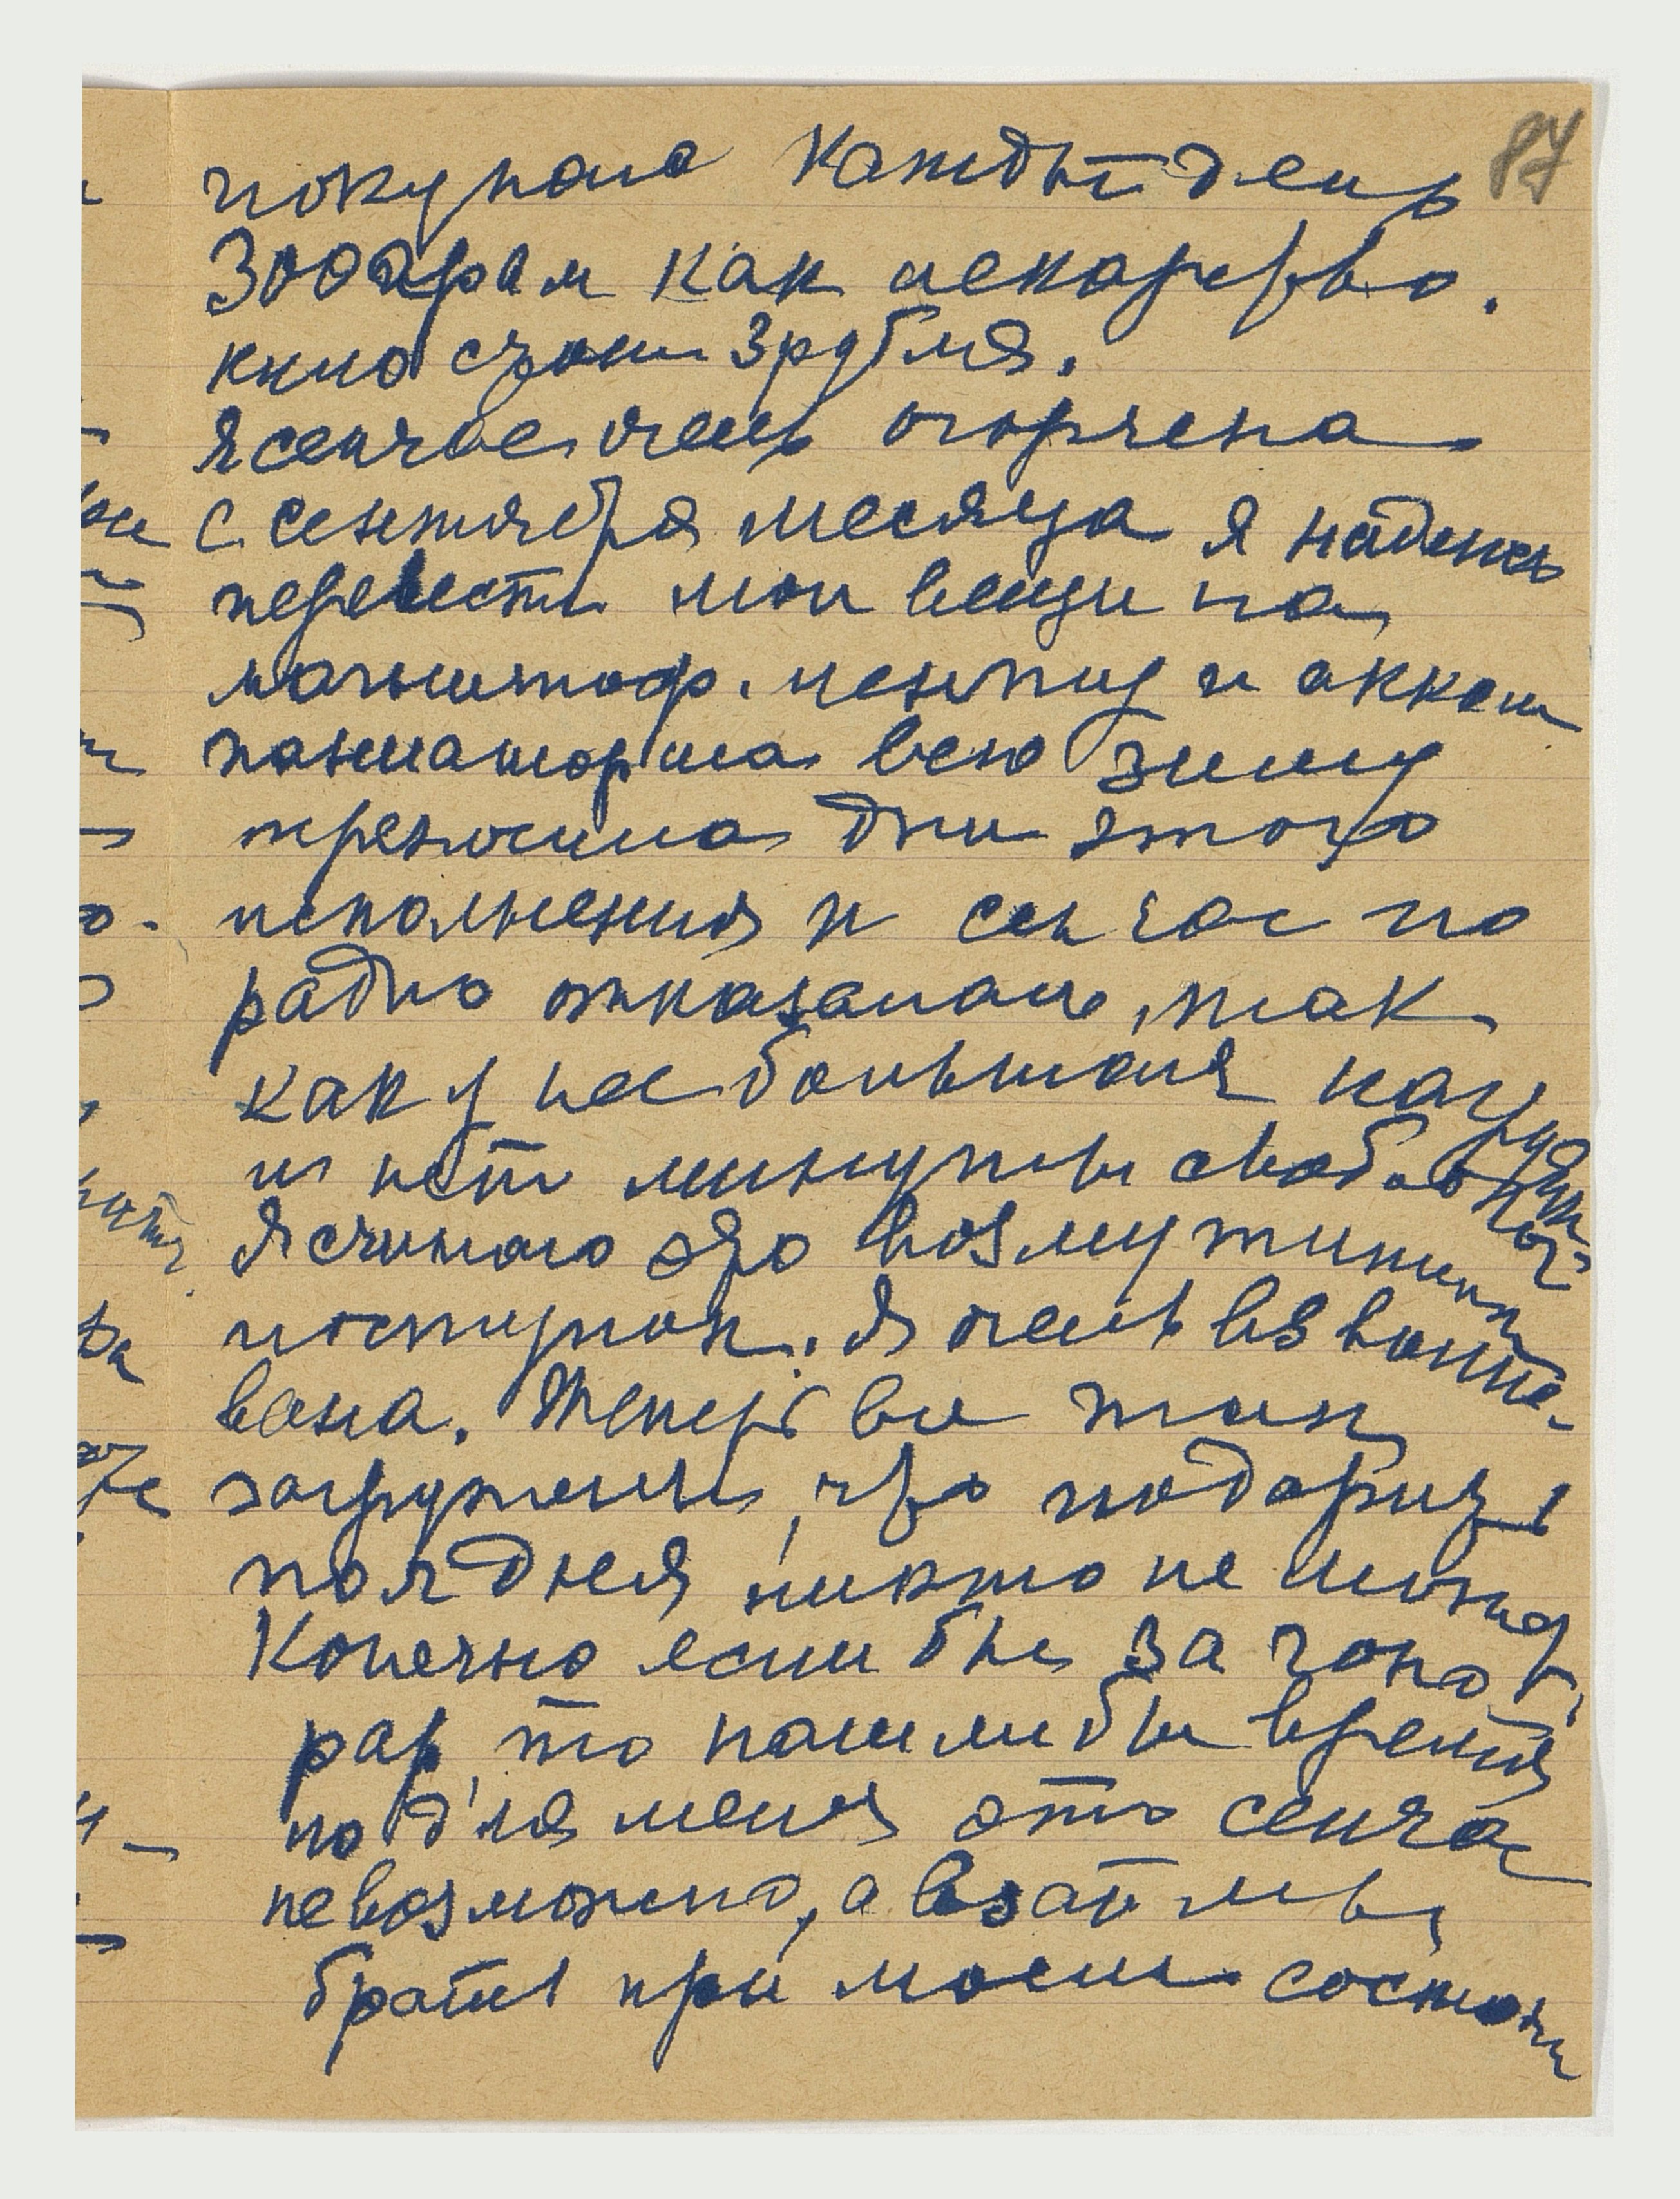 87
покупала каждый день
300 грам как лекарство.
кило стоит 3 рубля.
Я сейчас очень огорчена
с сентября месяца я надеюсь
перевести мои вещи на
магнитоф. ленту и аккom
паниаторша всю зиму
тренировала для этого
исполнения и сейчас по
радио отказалась, так
как у нее большая нагрузка
и нет минуты свободной
Я считаю это возмутительн
поступок. Я очень взволно-
вана. Теперь все так
загружены, что подарить
пол дня никто не может,
Конечно если бы за гоно
рар, то нашли бы время
но для меня это сейчас
невозможно, а взаймы
брать при моем состоян